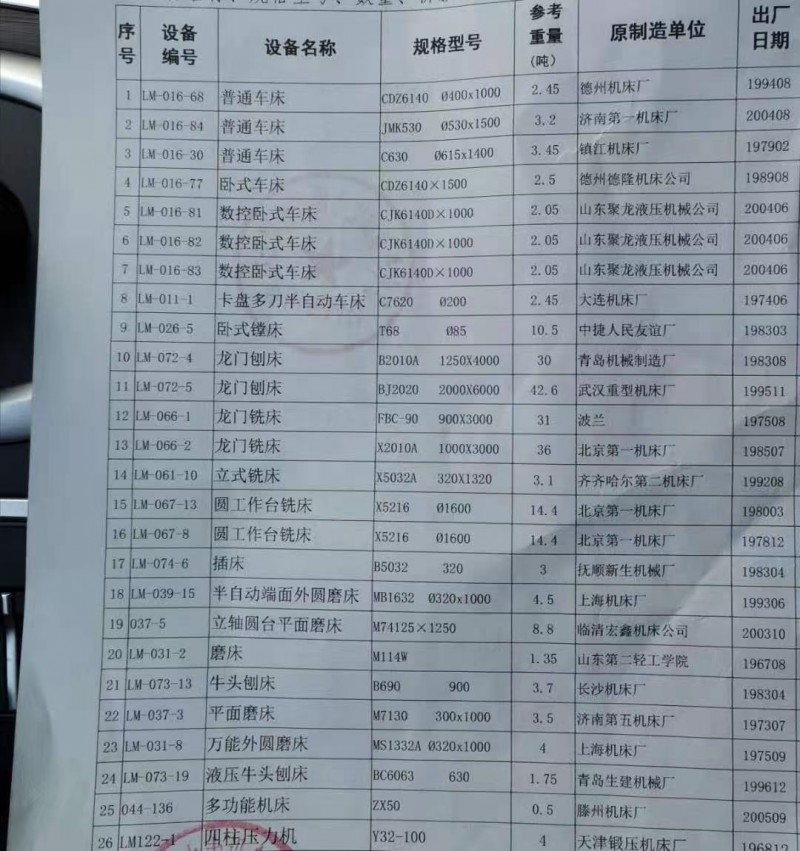 序号 设备编号 设备名称 规格型号 参考重量(吨) 原制造单位 出厂日期
1 LM-016-68 普通车床 CDZ6140 Ø400x1000 2.45 德州机床厂 199408
2 LM-016-84 普通车床 JMK530 Ø530x1500 3.2 济南第一机床厂 200408
3 LM-016-30 普通车床 C630 Ø615x1400 3.45 镇江机床厂 197902
4 LM-016-77 卧式车床 CDZ6140×1500 2.5 德州德隆机床公司 198908
5 LM-016-81 数控卧式车床 CJK6140D×1000 2.05 山东聚龙液压机械公司 200406
6 LM-016-82 数控卧式车床 CJK6140D×1000 2.05 山东聚龙液压机械公司 200406
7 LM-016-83 数控卧式车床 CJK6140D×1000 2.05 山东聚龙液压机械公司 200406
8 LM-011-1 卡盘多刀半自动车床 C7620 Ø200 2.45 大连机床厂 197406
9 LM-026-5 卧式镗床 T68 Ø85 10.5 中捷人民友谊厂 198303
10 LM-072-4 龙门刨床 B2010A 1250X4000 30 青岛机械制造厂 198308
11 LM-072-5 龙门刨床 BJ2020 2000X6000 42.6 武汉重型机床厂 199511
12 LM-066-1 龙门铣床 FBC-90 900X3000 31 波兰 197508
13 LM-066-2 龙门铣床 X2010A 1000X3000 36 北京第一机床厂 198507
14 LM-061-10 立式铣床 X5032A 320X1320 3.1 齐齐哈尔第二机床厂 199208
15 LM-067-13 圆工作台铣床 X5216 Ø1600 14.4 北京第一机床厂 198003
16 LM-067-8 圆工作台铣床 X5216 Ø1600 14.4 北京第一机床厂 197812
17 LM-074-6 插床 B5032 320 3 抚顺新生机械厂 198304
18 LM-039-15 半自动端面外圆磨床 MB1632 Ø320x1000 4.5 上海机床厂 199306
19 037-5 立轴圆台平面磨床 M74125×1250 8.8 临清宏鑫机床公司 200310
20 LM-031-2 磨床 M114W 1.35 山东第二轻工学院 196708
21 LM-073-13 牛头刨床 B690 900 3.7 长沙机床厂 198304
22 LM-037-3 平面磨床 M7130 300x1000 3.5 济南第五机床厂 197307
23 LM-031-8 万能外圆磨床 MS1332A Ø320x1000 4 上海机床厂 197509
24 LM-073-19 液压牛头刨床 BC6063 630 1.75 青岛生建机械厂 199612
25 044-136 多功能机床 ZX50 0.5 滕州机床厂 200509
26 LM122-1 四柱压力机 Y32-100 4 天津锻压机床厂 196812